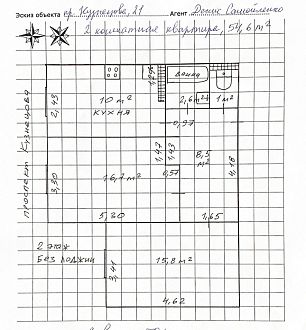 Эскиз объекта пр. Кузнецова, 21 Агент Денис Самойленко
2 комнатная квартира, 54,6 м²
проспект Кузнецова
2,43
10 м²
кухня
Ванна
2,6 м²
1 м²
0,97
1,47
1,43
8,5
м²
4,18
3,30
16,7 м²
0,57
5,20
1,65
2 этаж
Без лоджий
3,41
15,8 м²
4,62